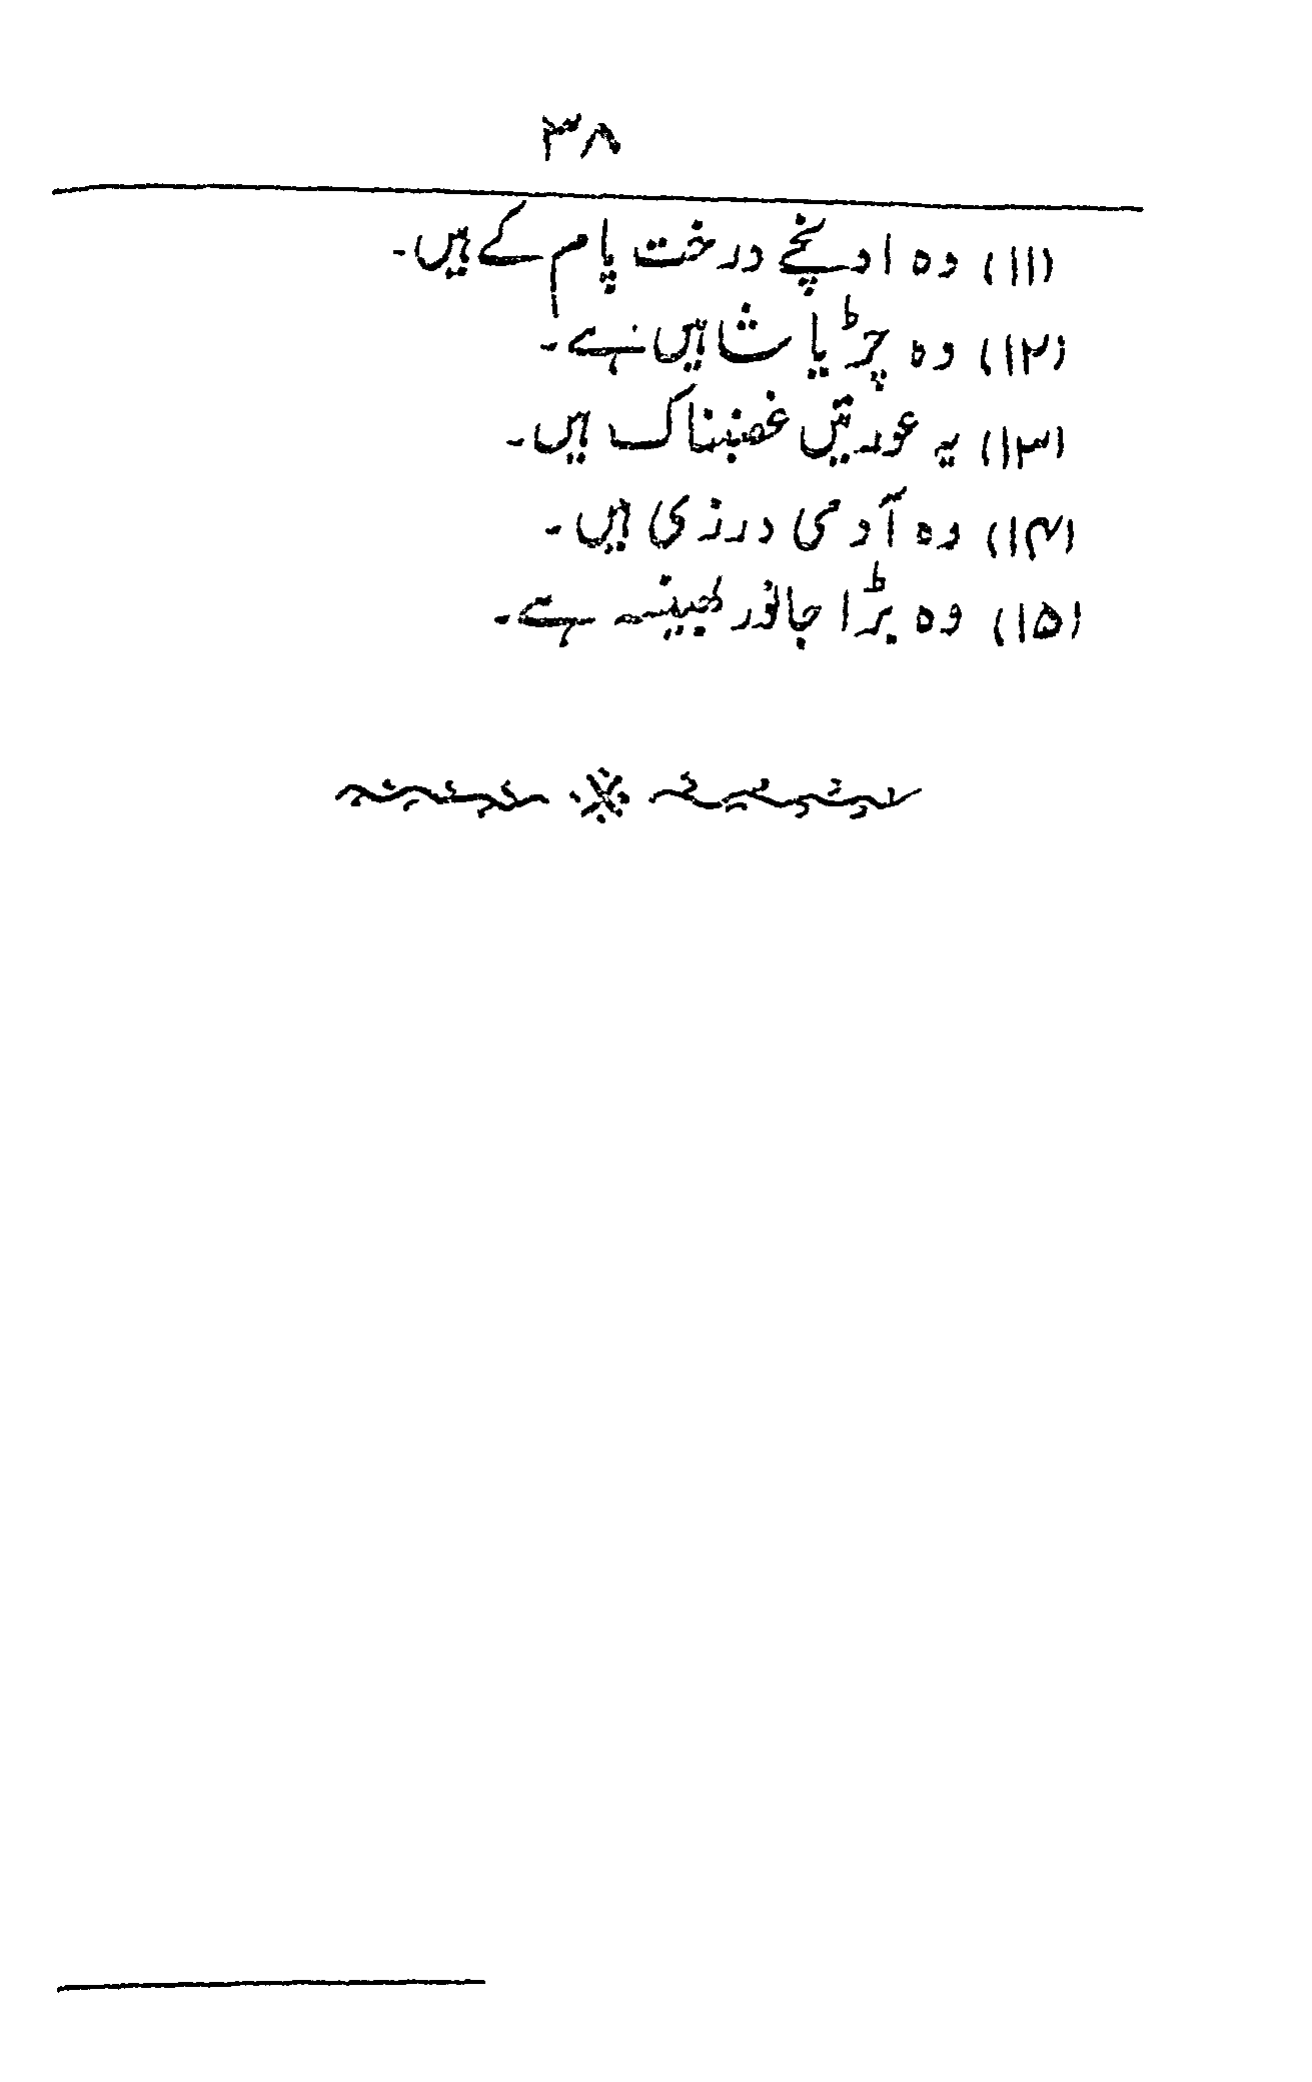 ۳۸
(۱۱) وہ اونچے درخت پام کے ہیں۔
(۱۲) وہ چڑیا شاہیں ہے۔
(۱۳) یہ عورتیں غضبناک ہیں۔
(۱۴) وہ آدمی درزی ہیں۔
(۱۵) وہ بڑا جانور بھینسہ ہے۔